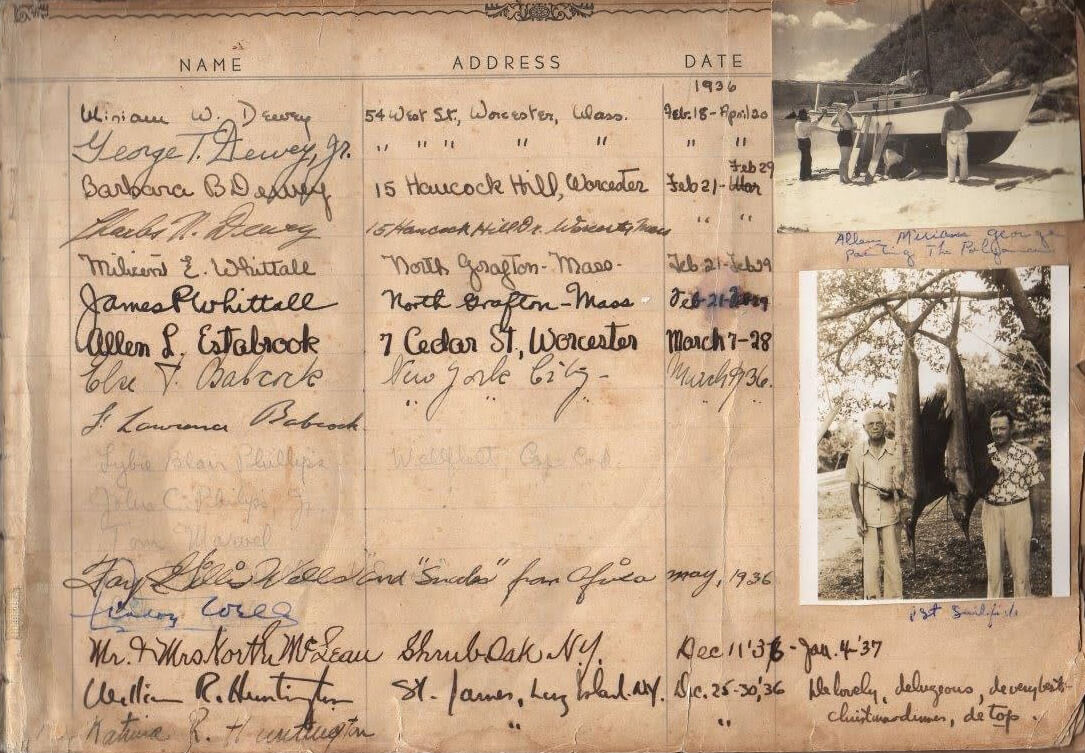 NAME ADDRESS DATE
1936
Miriam W. Dewey 54 West St., Worcester, Mass. Feb. 18 - April 20
George T. Dewey, Jr. " " " " " " "
Feb 29
Barbara B Dewey 15 Hancock Hill, Worcester Feb 21 - Mar
Charles N. Dewey 15 Hancock Hill Dr. Worcester, Mass " "
Milicent E. Whittall North Grafton - Mass - Feb 21 - Feb 29
James P. Whittall North Grafton - Mass Feb 21
Allen L. Estabrook 7 Cedar St, Worcester March 7-28
Else F. Babcock New York City - March 9/36.
F. Lawrence Babcock " "
Sybie Blair Phillips Wellfleet, Cape Cod.
John C. Philips Jr.
Tom Marvel
Fay Gillis Wells and "Simba" from Africa May, 1936
Linton Wells
Mr. & Mrs North McLean Shrub Oak N.Y. Dec 11 '36 - Jan. 4 '37
William R. Huntington St. James, Long Island. N.Y. Dec. 25-30, '36 De lovely, delugeous, de very best
christmas dinner, de top.
Katrina R. Huntington " "
Allen Miriam George
Painting The
1st Sailfish